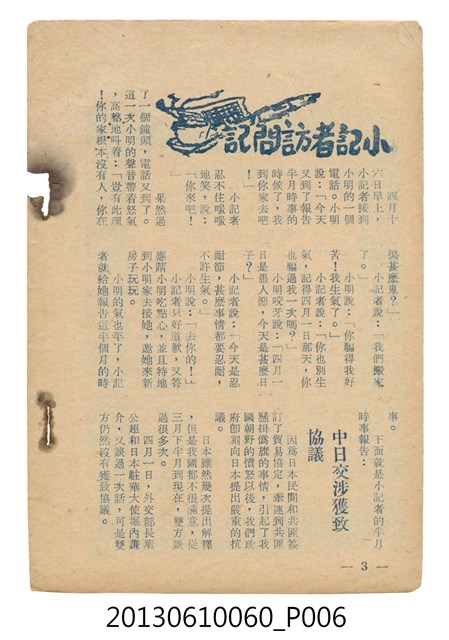 小記者訪問記
四月十
六日早上，
小記者接到
小明的一個
電話。小明
說：「今天
又到了報告
半月時事的
時候了，我
到你家去吧
！」
小記者
忍不住嗤嗤
地笑，說：
「你來吧！
」
果然過
了一個鐘頭，電話又到了。
這一次小明的聲音帶着怒氣
，高聲地叫着：「豈有此理
！你的家根本沒有人，你在
搗甚麼鬼？」
小記者說：「我們搬家
了。」
小明說：「你騙得我好
苦！我生氣了。」
小記者說：「你也別生
氣，記得四月一日那天，你
也騙過我一次嗎？」
小明咬牙說：「四月一
日是愚人節，今天是甚麼日
子？」
小記者說：「今天是忍
耐節，甚麼事情都要忍耐，
不許生氣。」
小明說：「去你的！」
小記者只好道歉，又答
應請小明吃點心，並且特地
到小明家去接她，邀她來新
房子玩玩。
小明的氣也平了，小記
者就給她報告這半個月的時
事。
下面就是小記者的半月
時事報告：
中日交涉獲致
協議
因爲日本民間和共匪簽
訂了貿易協定，牽連到共匪
懸掛僞旗的事情，引起了我
國朝野的憤怒以後，我們政
府即刻向日本提出嚴重的抗
議。
日本雖然幾次提出解釋
，但是我國都不很滿意，從
三月下半月到現在，雙方談
過很多次。
四月一日，外交部長葉
公超和日本駐華大使堀內謙
介，又談過一次話，可是雙
方仍然沒有獲致協議。
— 3 —
20130610060_P006